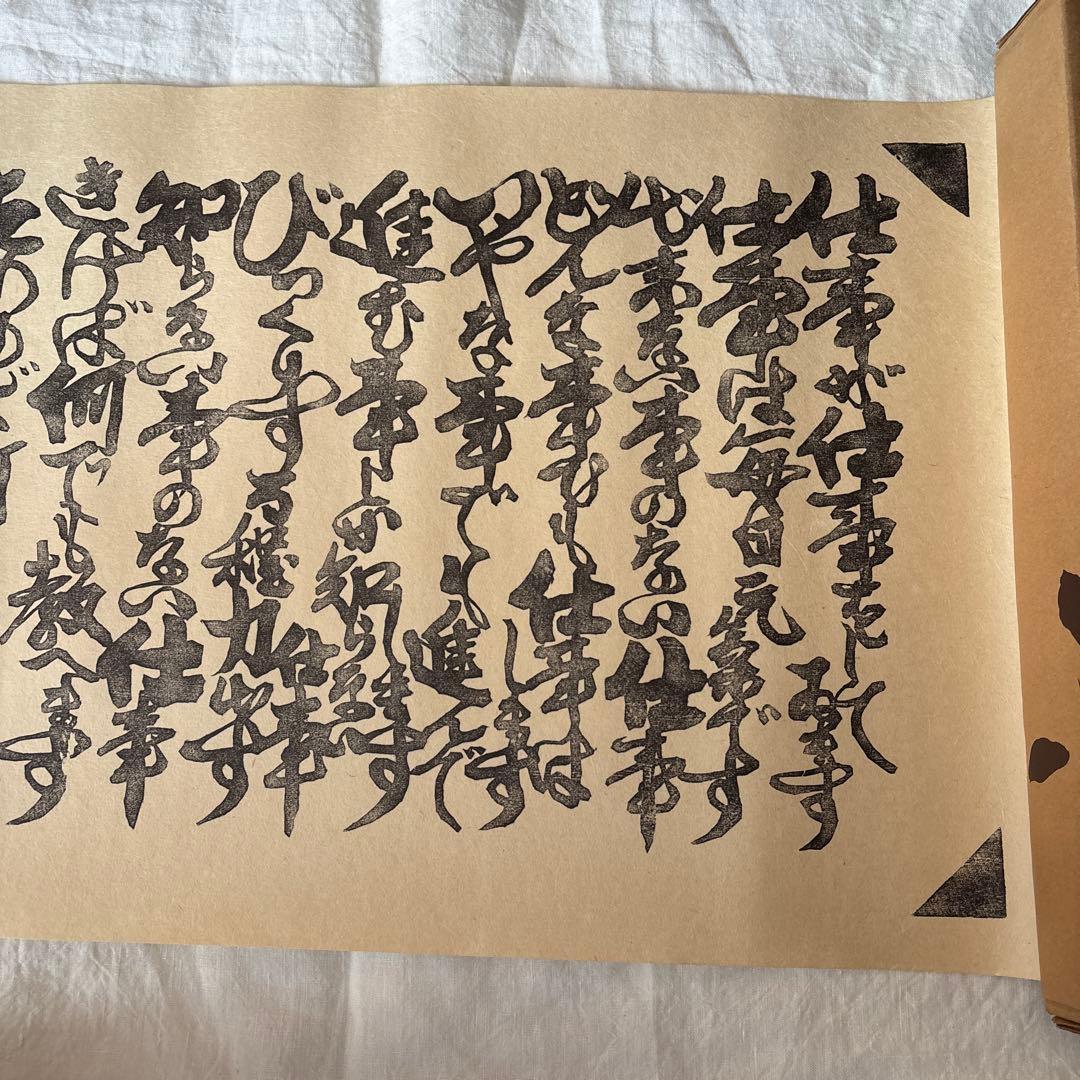 仕事が仕事をして居ます
仕事は毎日元気です
出来ない事のない仕事
どんな事でも仕事はします
いやな事でも進んでします
進む事しか知らない仕事
びっくりする程力出す
知らない事のない仕事
きけば何でも教へます
たのめば